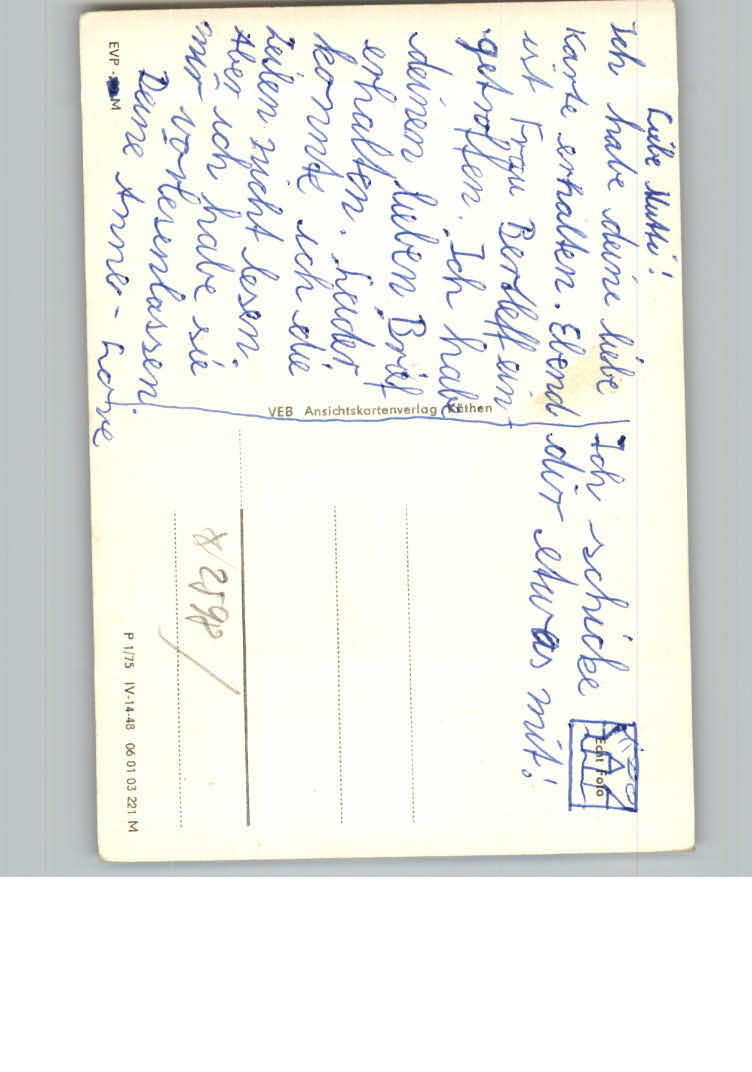 Liebe Mutti!
Ich habe deine liebe
Karte erhalten. Ebend
ist Frau Bertleff ein-
getroffen. Ich habe
deinen lieben Brief
erhalten. Leider
konnte ich die
Zeilen nicht lesen.
Aber ich habe sie
mir vorlesenlassen.
Deine Anne-Lore
Ich schicke
dir etwas mit!
Echt Foto
VEB Ansichtskartenverlag Köthen
2598
EVP - M
P 1/75 IV-14-48 06 01 03 221 M